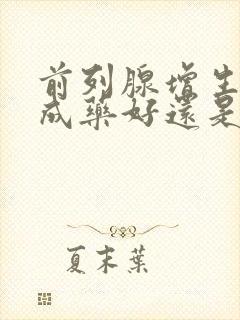 前列腺增生
成藥好還是
夏末葉